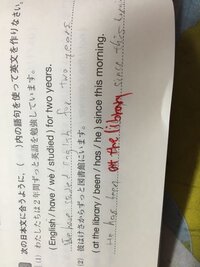 次の日本文に合うように，( )内の語句を使って英文を作りなさい。
(1) わたしたちは2年間ずっと英語を勉強しています。
( English / have / we / studied ) for two years.
We have studied English for two years
(2) 彼はけさからずっと図書館にいます。
( at the library / been / has / he ) since this morning.
He has been at the library since this